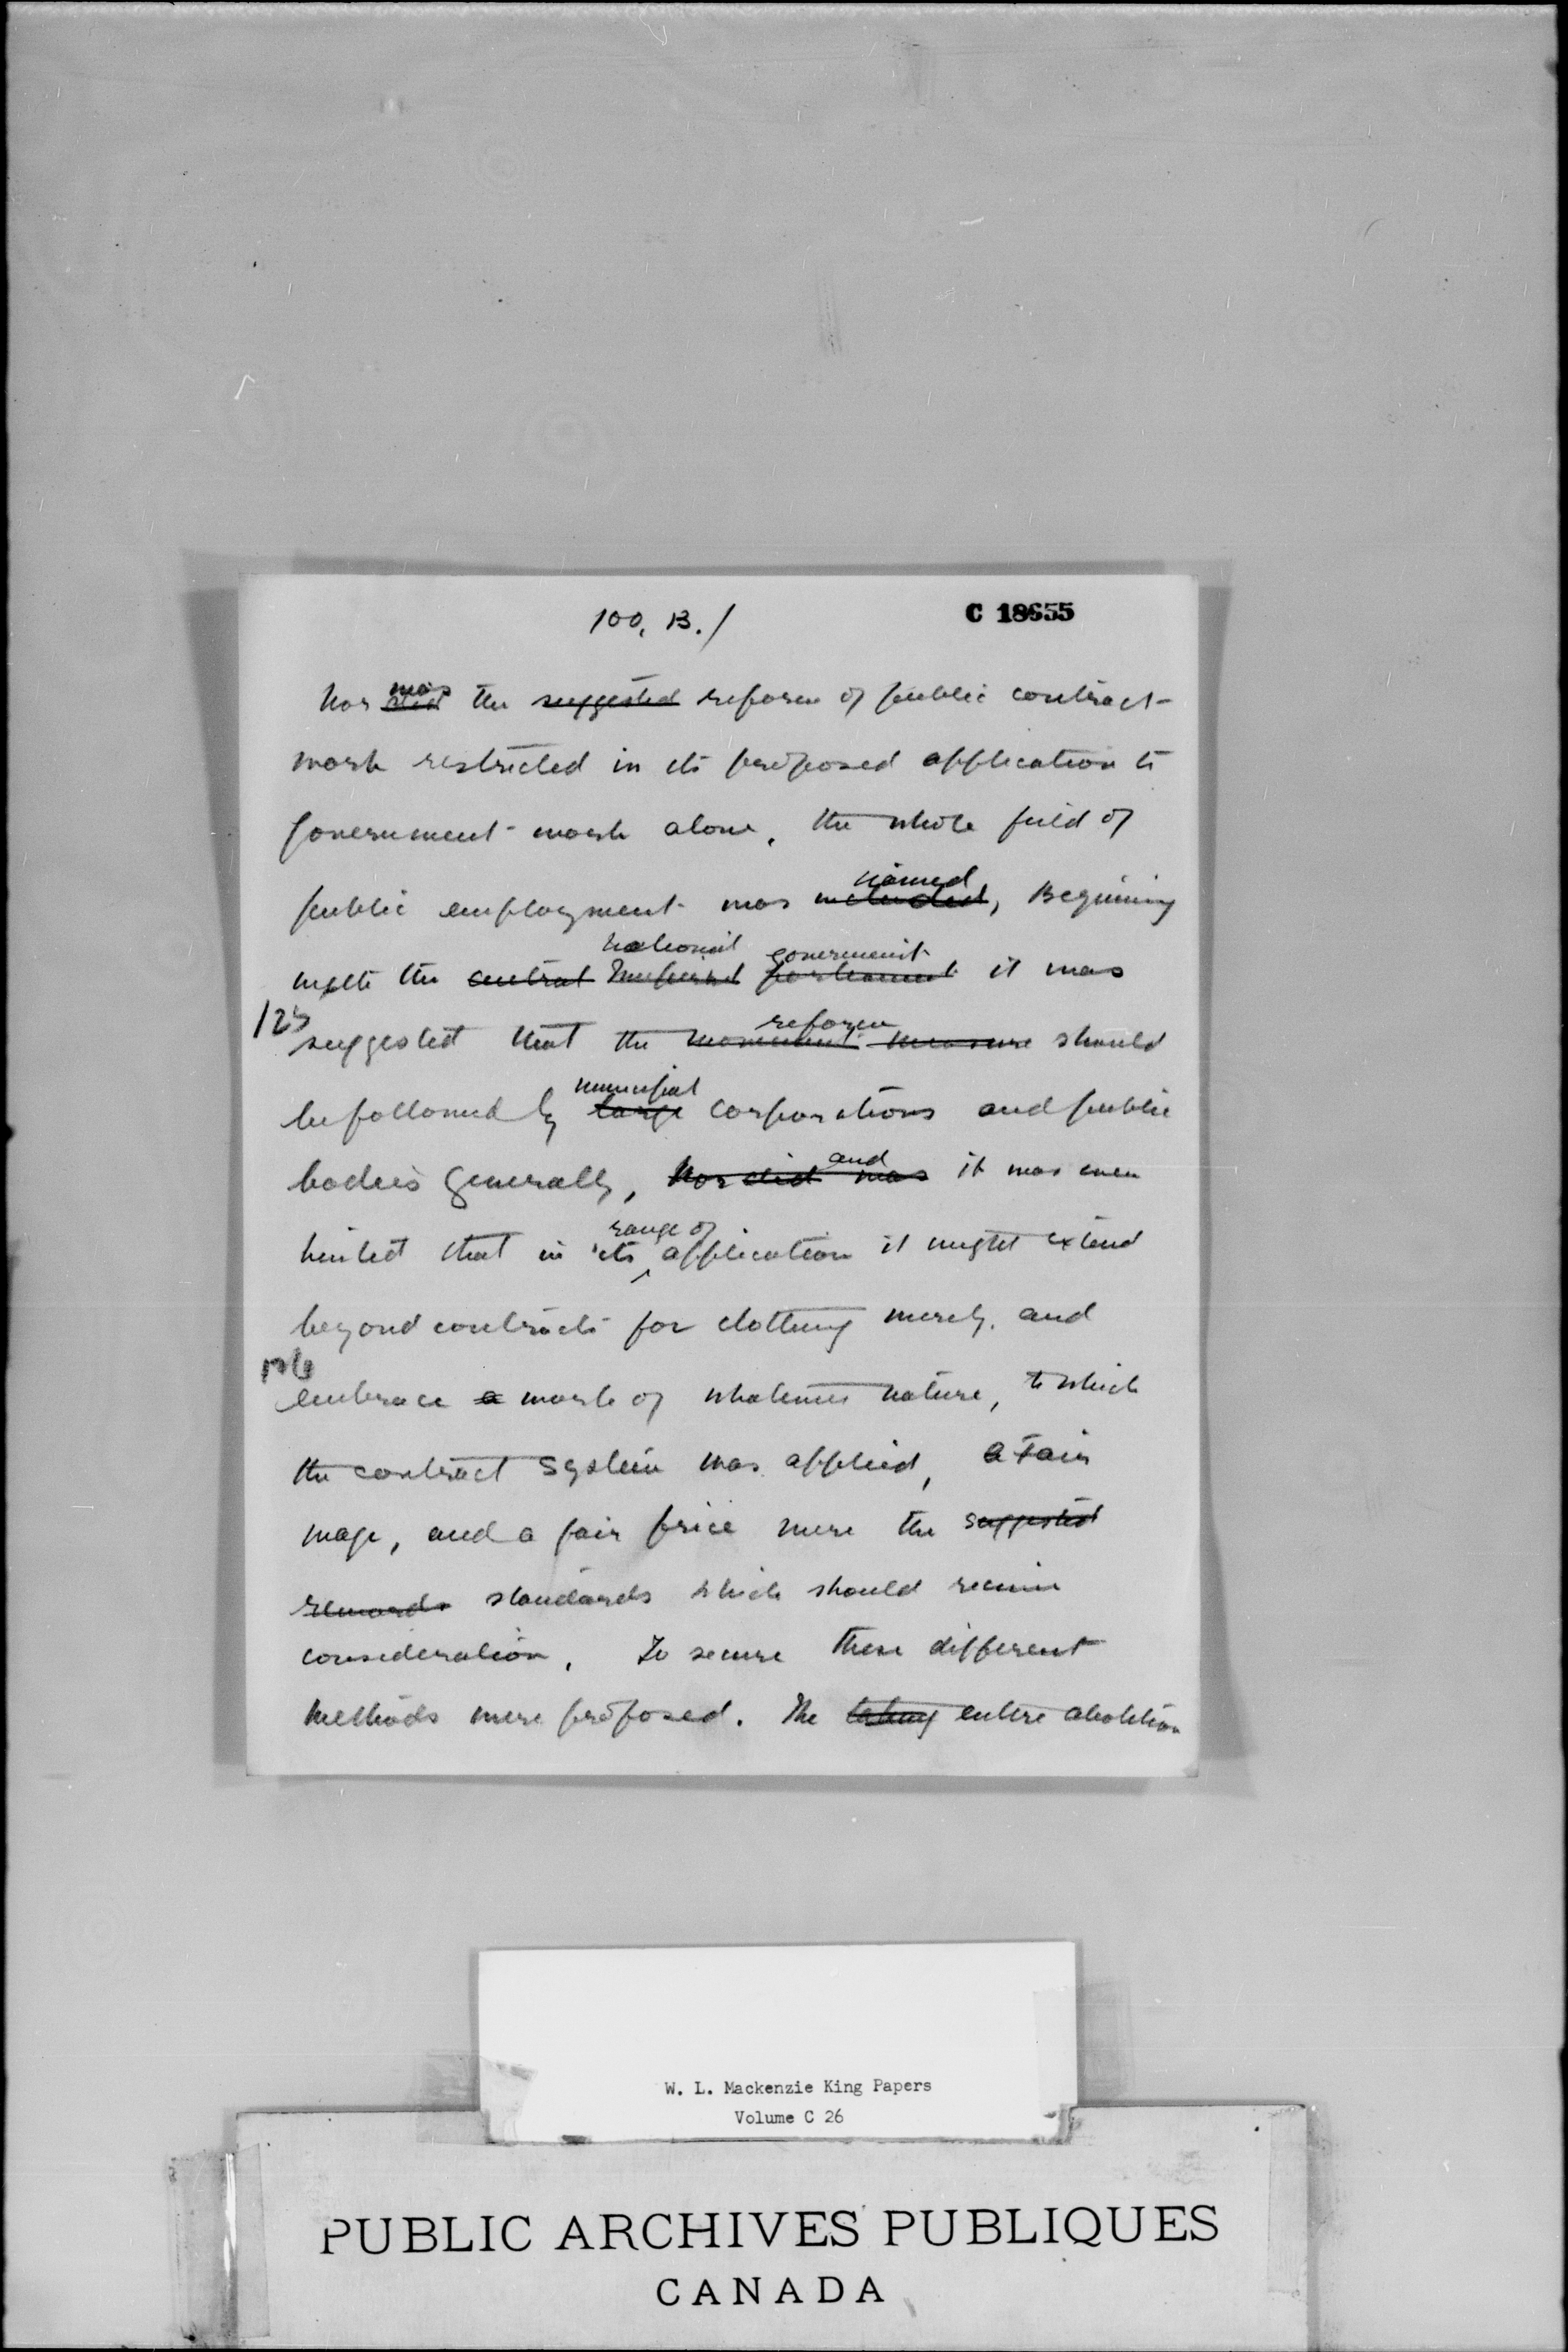 100, B./
C 18655
Nor was did the suggested reform of public contract-
work restricted in its proposed application to
government work alone, the whole field of
public employment was named included, Beginning
with the national government central Imperial parliament it was
125
suggested that the reform movement measure should
be followed by municipal large corporations and public
bodies generally, and Nor did was it was even
hinted that in its range of application it might extend
beyond contracts for clothing merely, and
126
embrace a work of whatever nature, to which
the contract system was applied, a Fair
wage, and a fair price were the suggested
rewards standards which should receive
consideration. To secure these different
methods were proposed. The taking entire abolition
W. L. Mackenzie King Papers
Volume C 26
PUBLIC ARCHIVES PUBLIQUES
CANADA